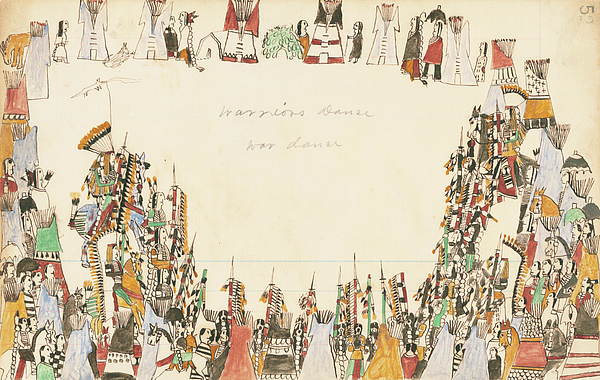 Warriors Danse
war danse